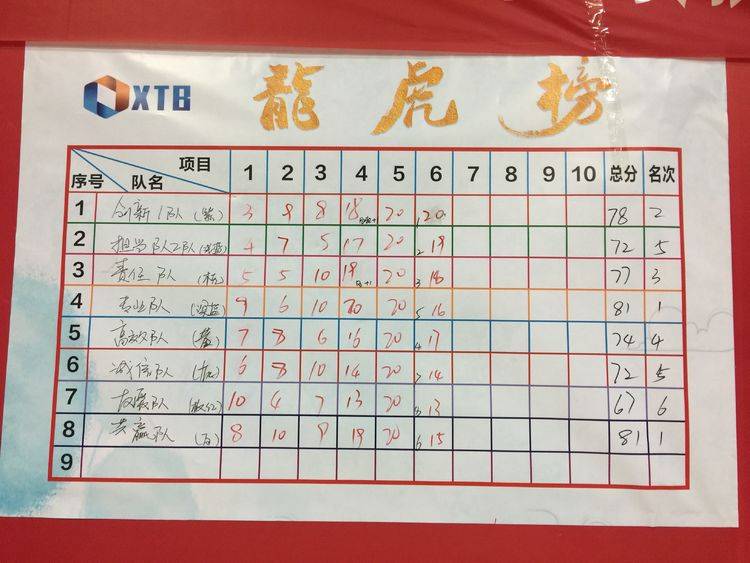 XTB
龍虎榜
序号 项目 队名 1 2 3 4 5 6 7 8 9 10 总分 名次
1 创新1队 (紫) 3 9 8 18 20 1 20 78 2
2 担当队2队 4 7 5 17 20 2 19 72 5
3 责任队 5 5 10 19 20 3 18 77 3
4 专业队 (深蓝) 9 6 10 20 20 5 16 81 1
5 高效队 7 8 6 16 20 4 17 74 4
6 诚信队 6 8 10 14 20 7 14 72 5
7 友爱队 10 4 7 13 20 8 13 67 6
8 共赢队 8 10 9 19 20 6 15 81 1
9